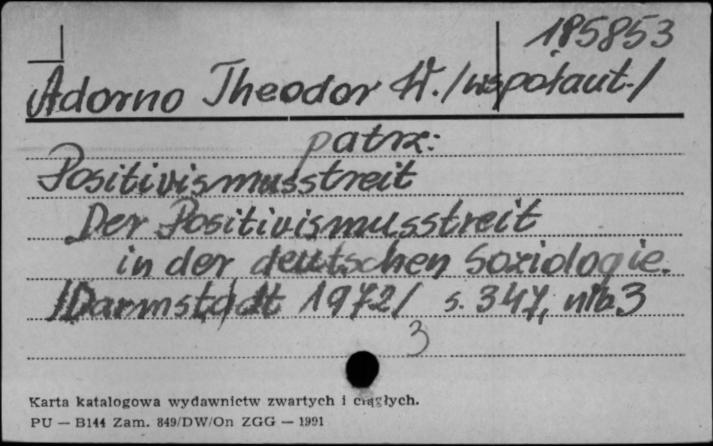 185853
Adorno Theodor W. /współaut./
patrz:
Positivismusstreit
Der Positivismusstreit
in der deutschen Soziologie.
/Darmstadt 1972/ s. 347, nlb 3
3
Karta katalogowa wydawnictw zwartych i ciągłych.
PU — B144 Zam. 849/DW/On ZGG — 1991